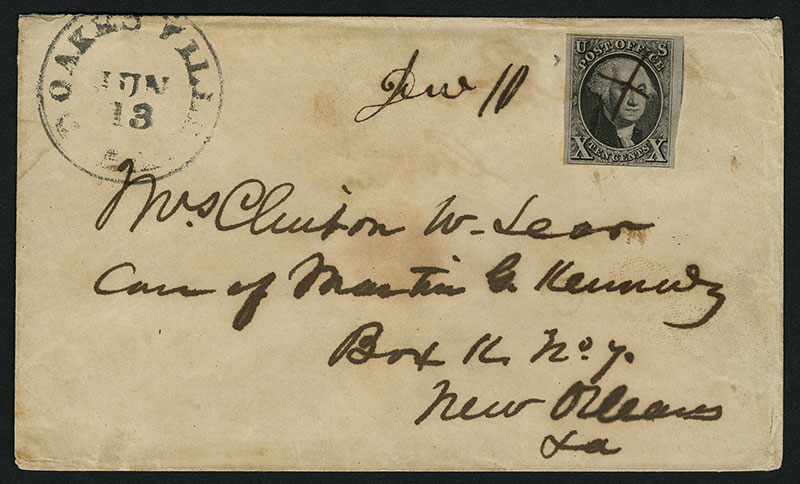 OAKESVILLE
JUN
13
U S
POST OFFICE
X TEN CENTS X
Mrs Clinton W. Lear
Care of Martin G. Kennedy
Box K. No 7.
New Orleans
La